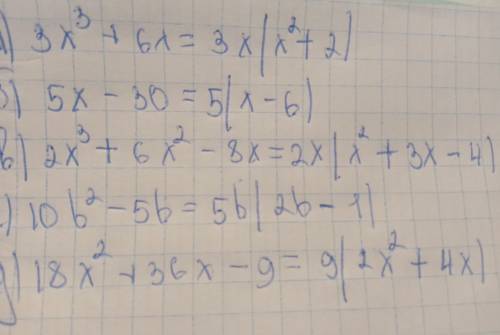 а) 3x³ + 6x = 3x(x² + 2)
б) 5x - 30 = 5(x - 6)
в) 2x³ + 6x² - 8x = 2x(x² + 3x - 4)
г) 10b² - 5b = 5b(2b - 1)
д) 18x² + 36x - 9 = 9(2x² + 4x)